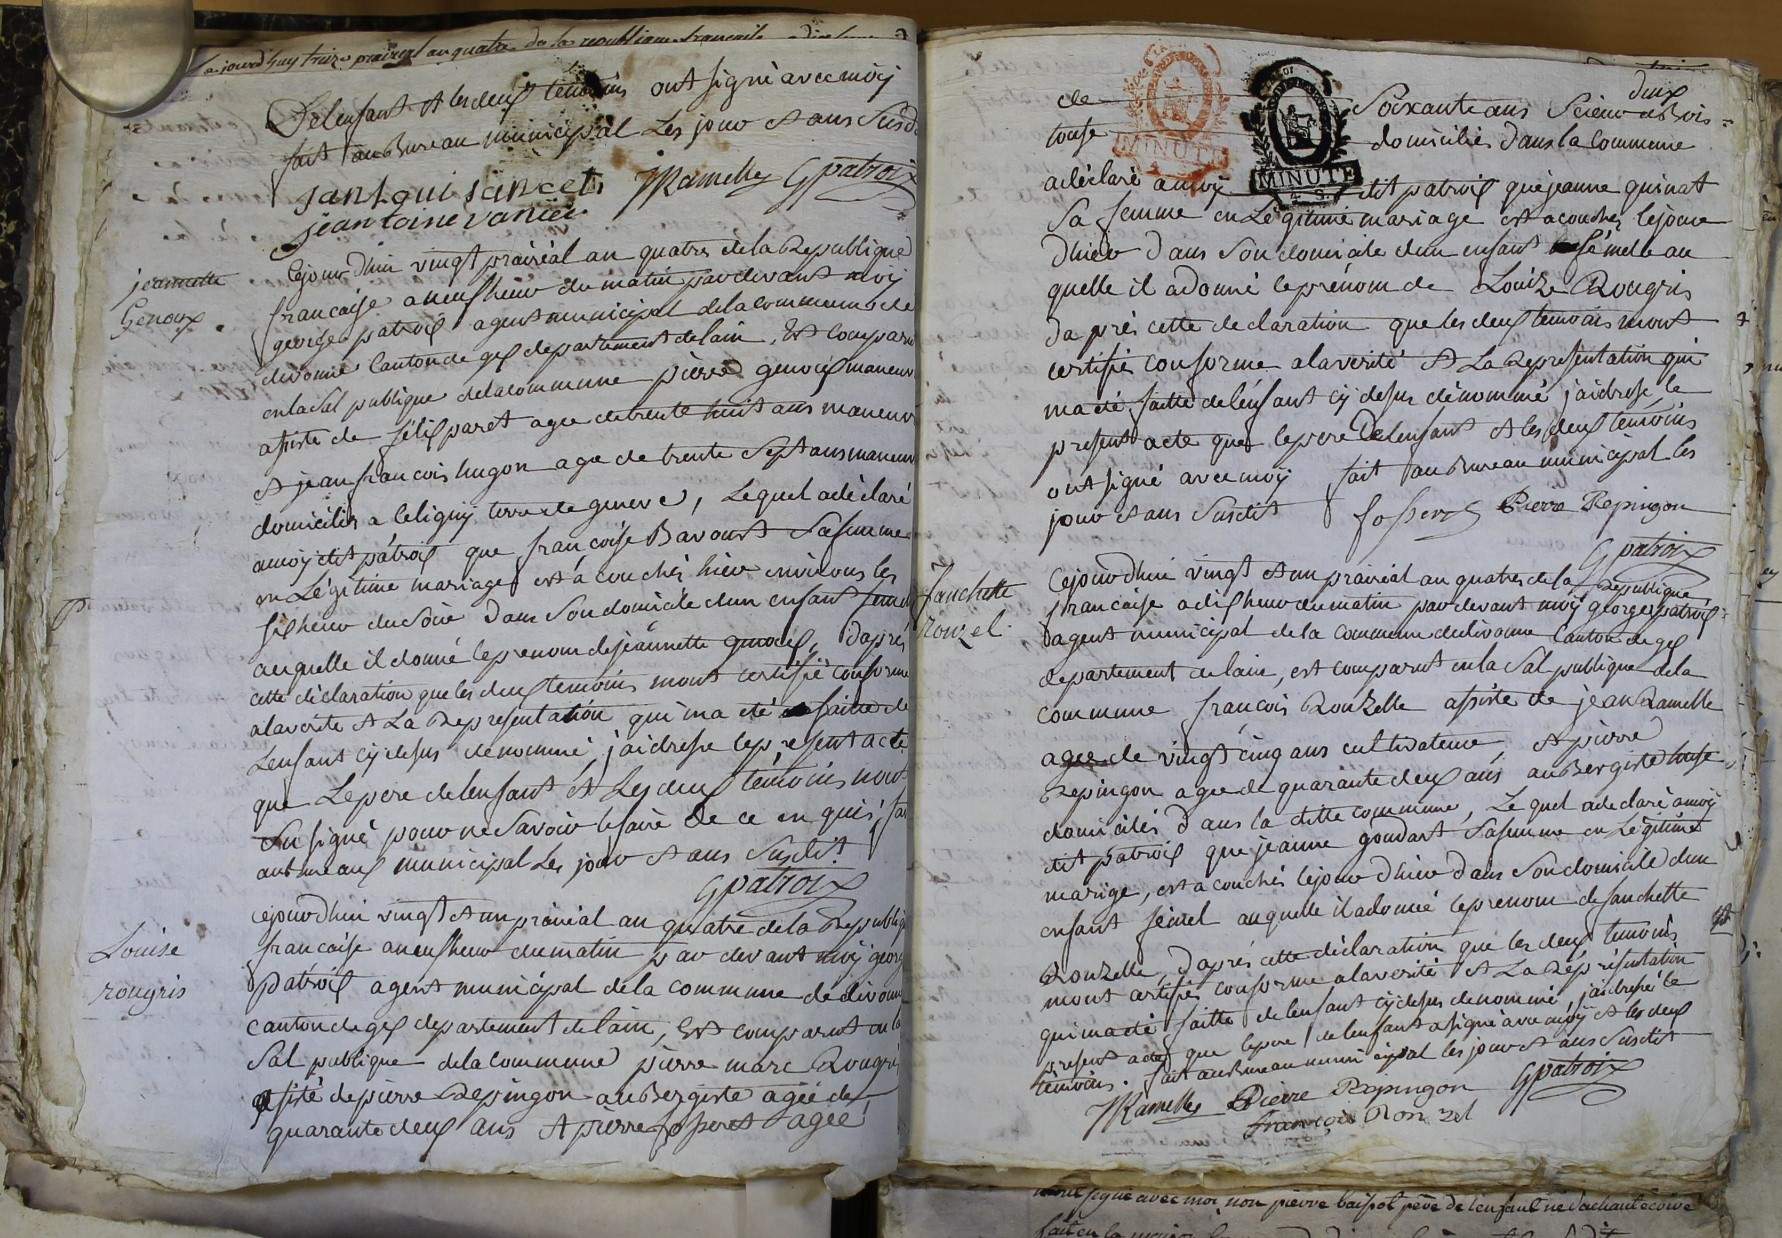 aujourd'huy treize prairial an quatre de la republique francaise
Delenfant et les deux temoins ont signé avec moy
fait au Bureau municipal Les jour et ans Susd
jant qui sancet JRamelle GPatroix
jeantoine vanier
jeannette
Genoux
Cejourdhui vingt prairéal an quatre de la Republique
francaise a neuf heur du matin par devant moy
george patroix agent municipal de la commune de
divonne Canton de gex departement de lain, Est comparu
en la Sal publique de la commune pierre genoix maneuv
assisté de felix paret agee de trente huit ans maneuv
et jean francois hugon age de trente Sept ans maneuv
domiciliés a Celigny terre de geneve, Lequel a déclaré
a moy dit patroix que francoise Bavout Sa femme
en Légitime mariage est a couchés hier environs les
six heur du Soir dans Son domicile dun enfant femel
au quelle il donné le prenom de jeannette genoix, daprés
cette déclaration que les deux temoins mont certifié conforme
a la verité et La Representation qui ma eté faitte de
Lenfant cy desus denommé, jai dressé le present acte
que Le pere de lenfant et Les deux témoins nont
Su signé pour ne Savoir le faire de ce enquis, fai
au bureaux municipal Les jour et ans Susdit
GPatroix
Louise
rougris
Cejourdhui vingt et un prairial an quatre de la Republiq
francaise a neuf heur du matin par devant moy georg
patroix agent municipal de la commune de divonne
canton de gex departement de lain, Est comparut en la
Sal publique de la commune pierre marc Rougris
assisté de pierre Repingon auBergiste agée de
quarante deux ans et pierre fosseret agée
de Soixante ans Scieur de Bois
deux
tous domiciliés dans la Commune
MINUTE
MINUTE
a déclaré a moy dit patroix que jeanne quinat
Sa femme en Légitime mariage est a couchés le jour
dhier dans Son domicile dun enfant fémelle au
quelle il a donné le prénom de Louise Rougris
da prés cette declaration que les deux temoins mont
certifié conforme a la verité et La Representation qui
ma eté faitte de lénfant cy desus dénommé jai dressé le
present acte que le pere de lenfant et les deux témoins
ont signé avec moy fait au Bureau municipal les
jour et ans Susdit fosseret Pierre Repingon
GPatroix
fanchette
rouzel
Cejourdhui vingt et un prairial an quatre de la Republique
francaise a dix heur du matin par devant moy george patroix
agent municipal de la commune de divonne Canton de gex
departement de lain, est comparut en la Sal publique de la
commune francois Rouzelle assisté de jean Ramelle
agee de vingt cinq ans cultivateur, et pierre
Repingon agee de quarante deux ans auBergiste tous
domiciliés dans la ditte commune, Le quel a declaré a moy
dit patroix que jeanne goudart Sa femme en Légitime
marige, est a couchés le jour dhier dans Son domicile dun
enfant fémel au quelle il a donné le prenom de fanchette
Rouzelle, daprés cette déclaration que les deux temoins
mont certifié conforme a la verité et La Représentation
qui ma eté faitte de lenfant cy desus denommé, jai dressé le
present acte que le pere de lenfant a signé avec moy et les deux
témoins. fait au Bureau municipal les jour et ans Susdit
JRamelle Pierre Repingon GPatroix
françois Ronzel
signé avec moi non pierre baifpot père de l'enfant ne sachant écrire
fait en la maison